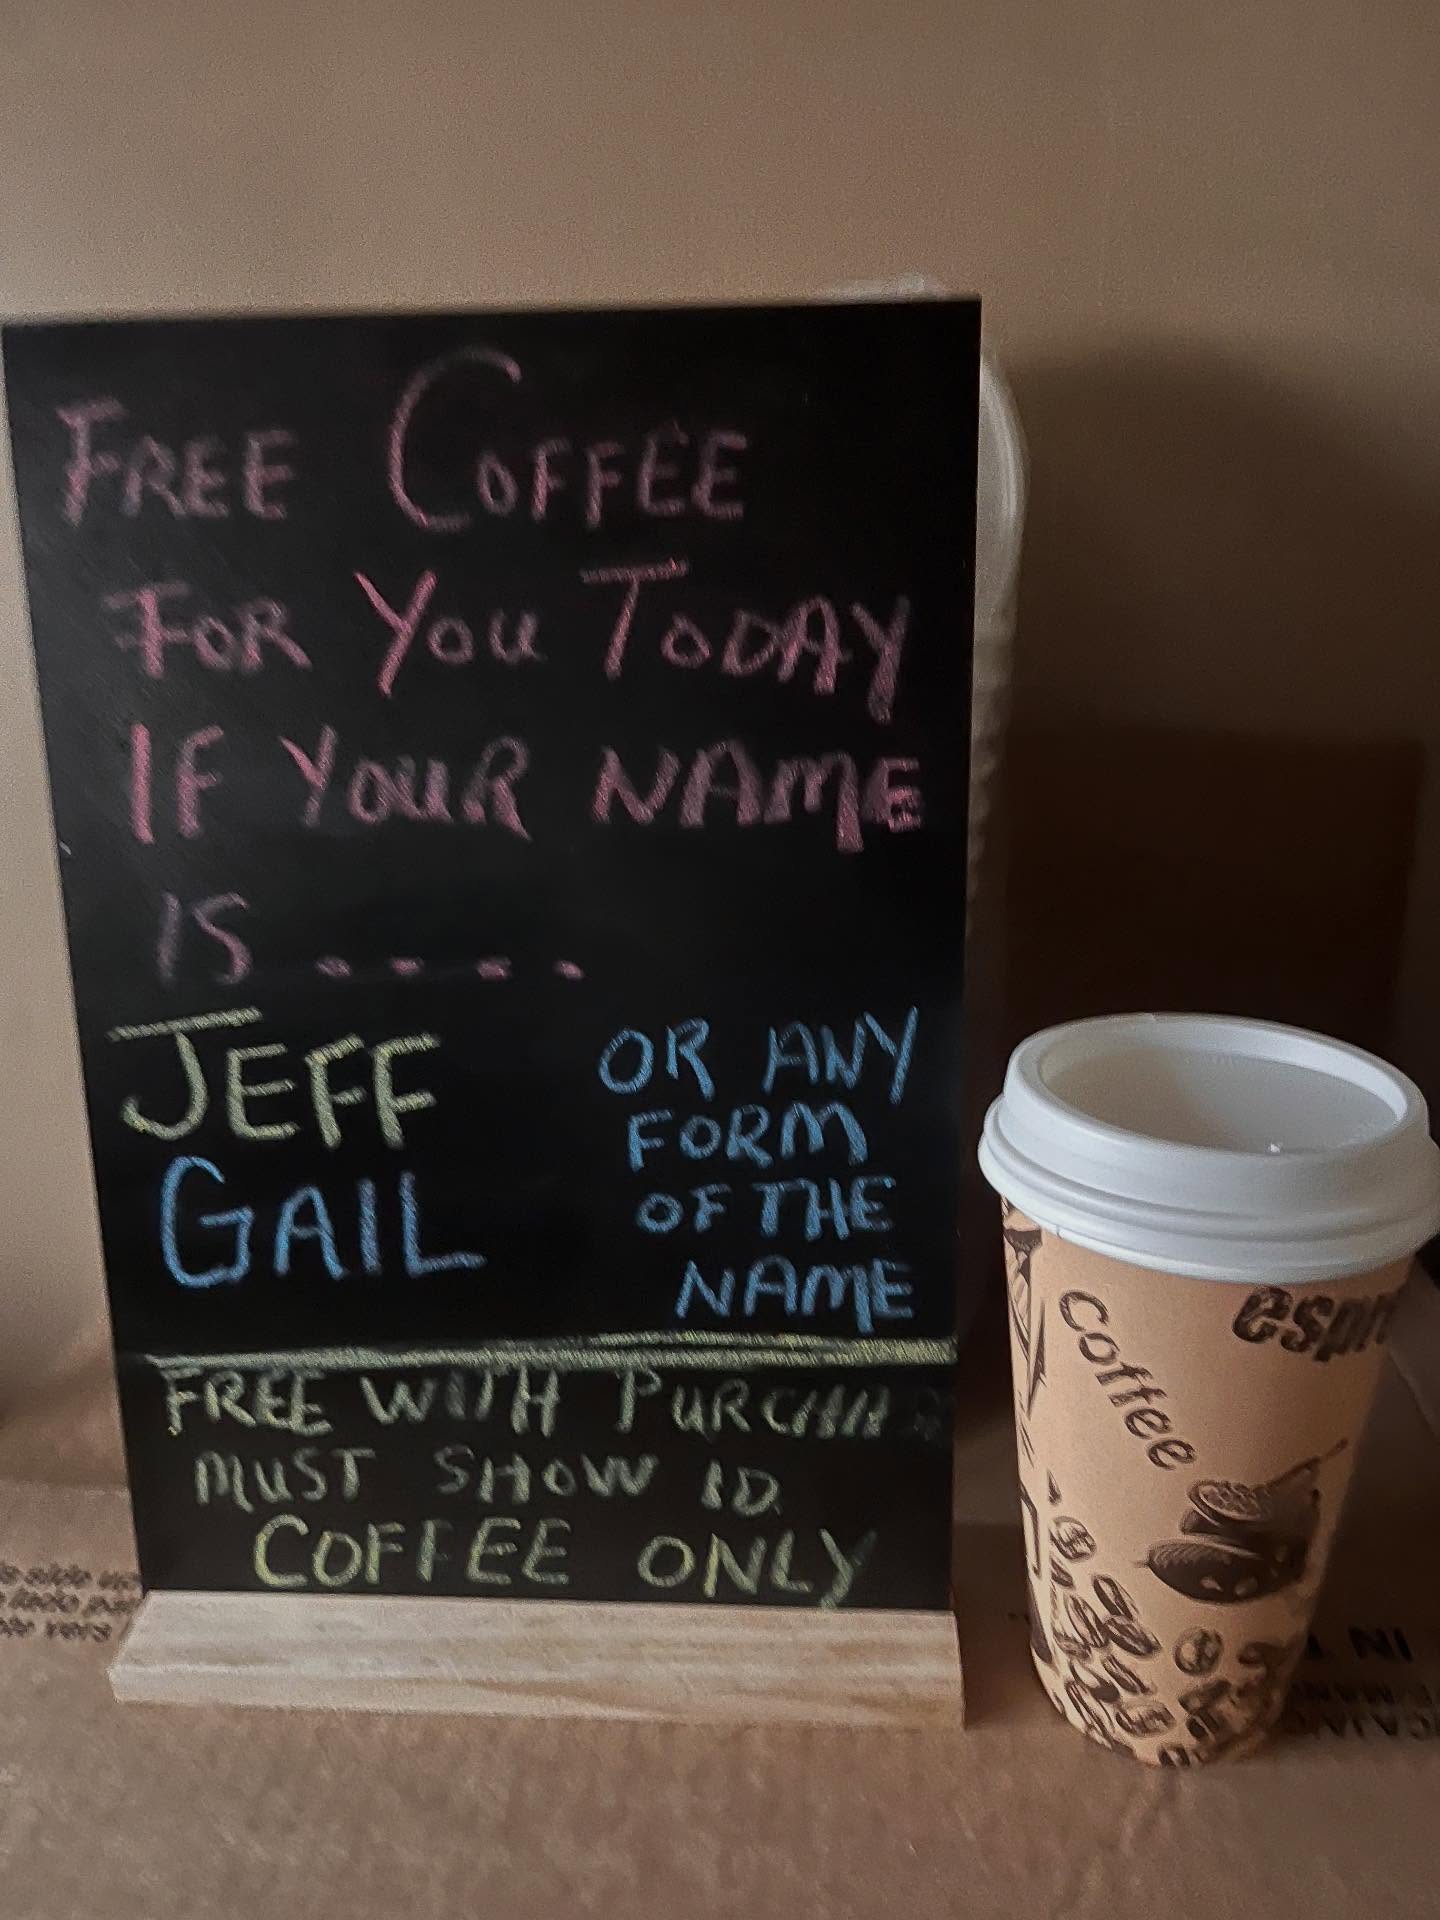 FREE COFFEE
FOR YOU TODAY
IF YOUR NAME
IS....
JEFF
GAIL
OR ANY
FORM
OF THE
NAME
FREE WITH
MUST SHOW ID.
COFFEE ONLY
Coffee